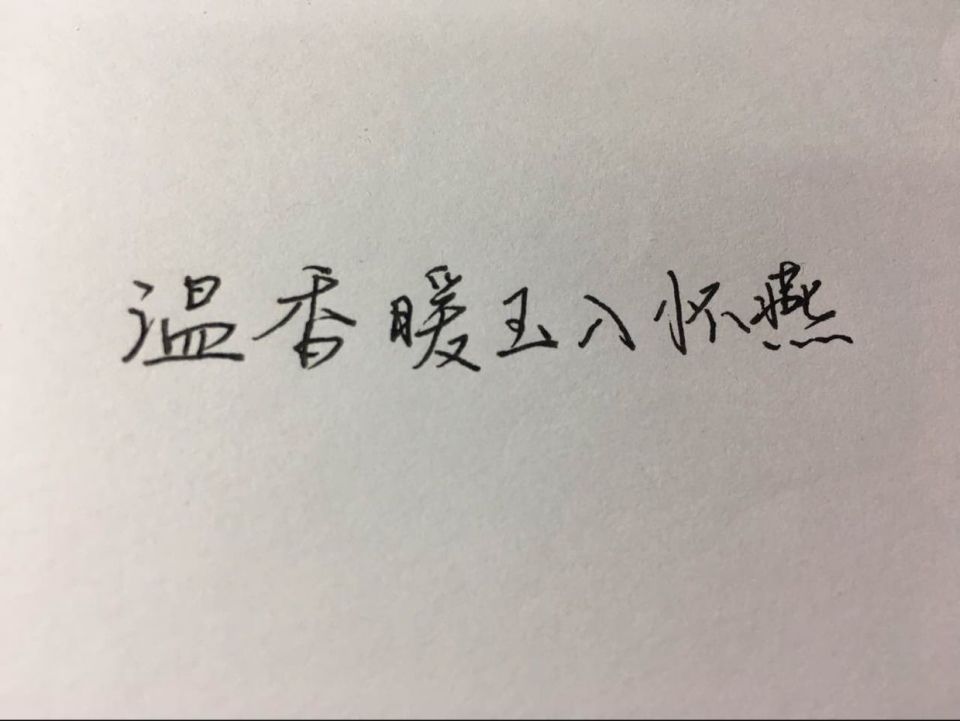 温香暖玉入怀燕